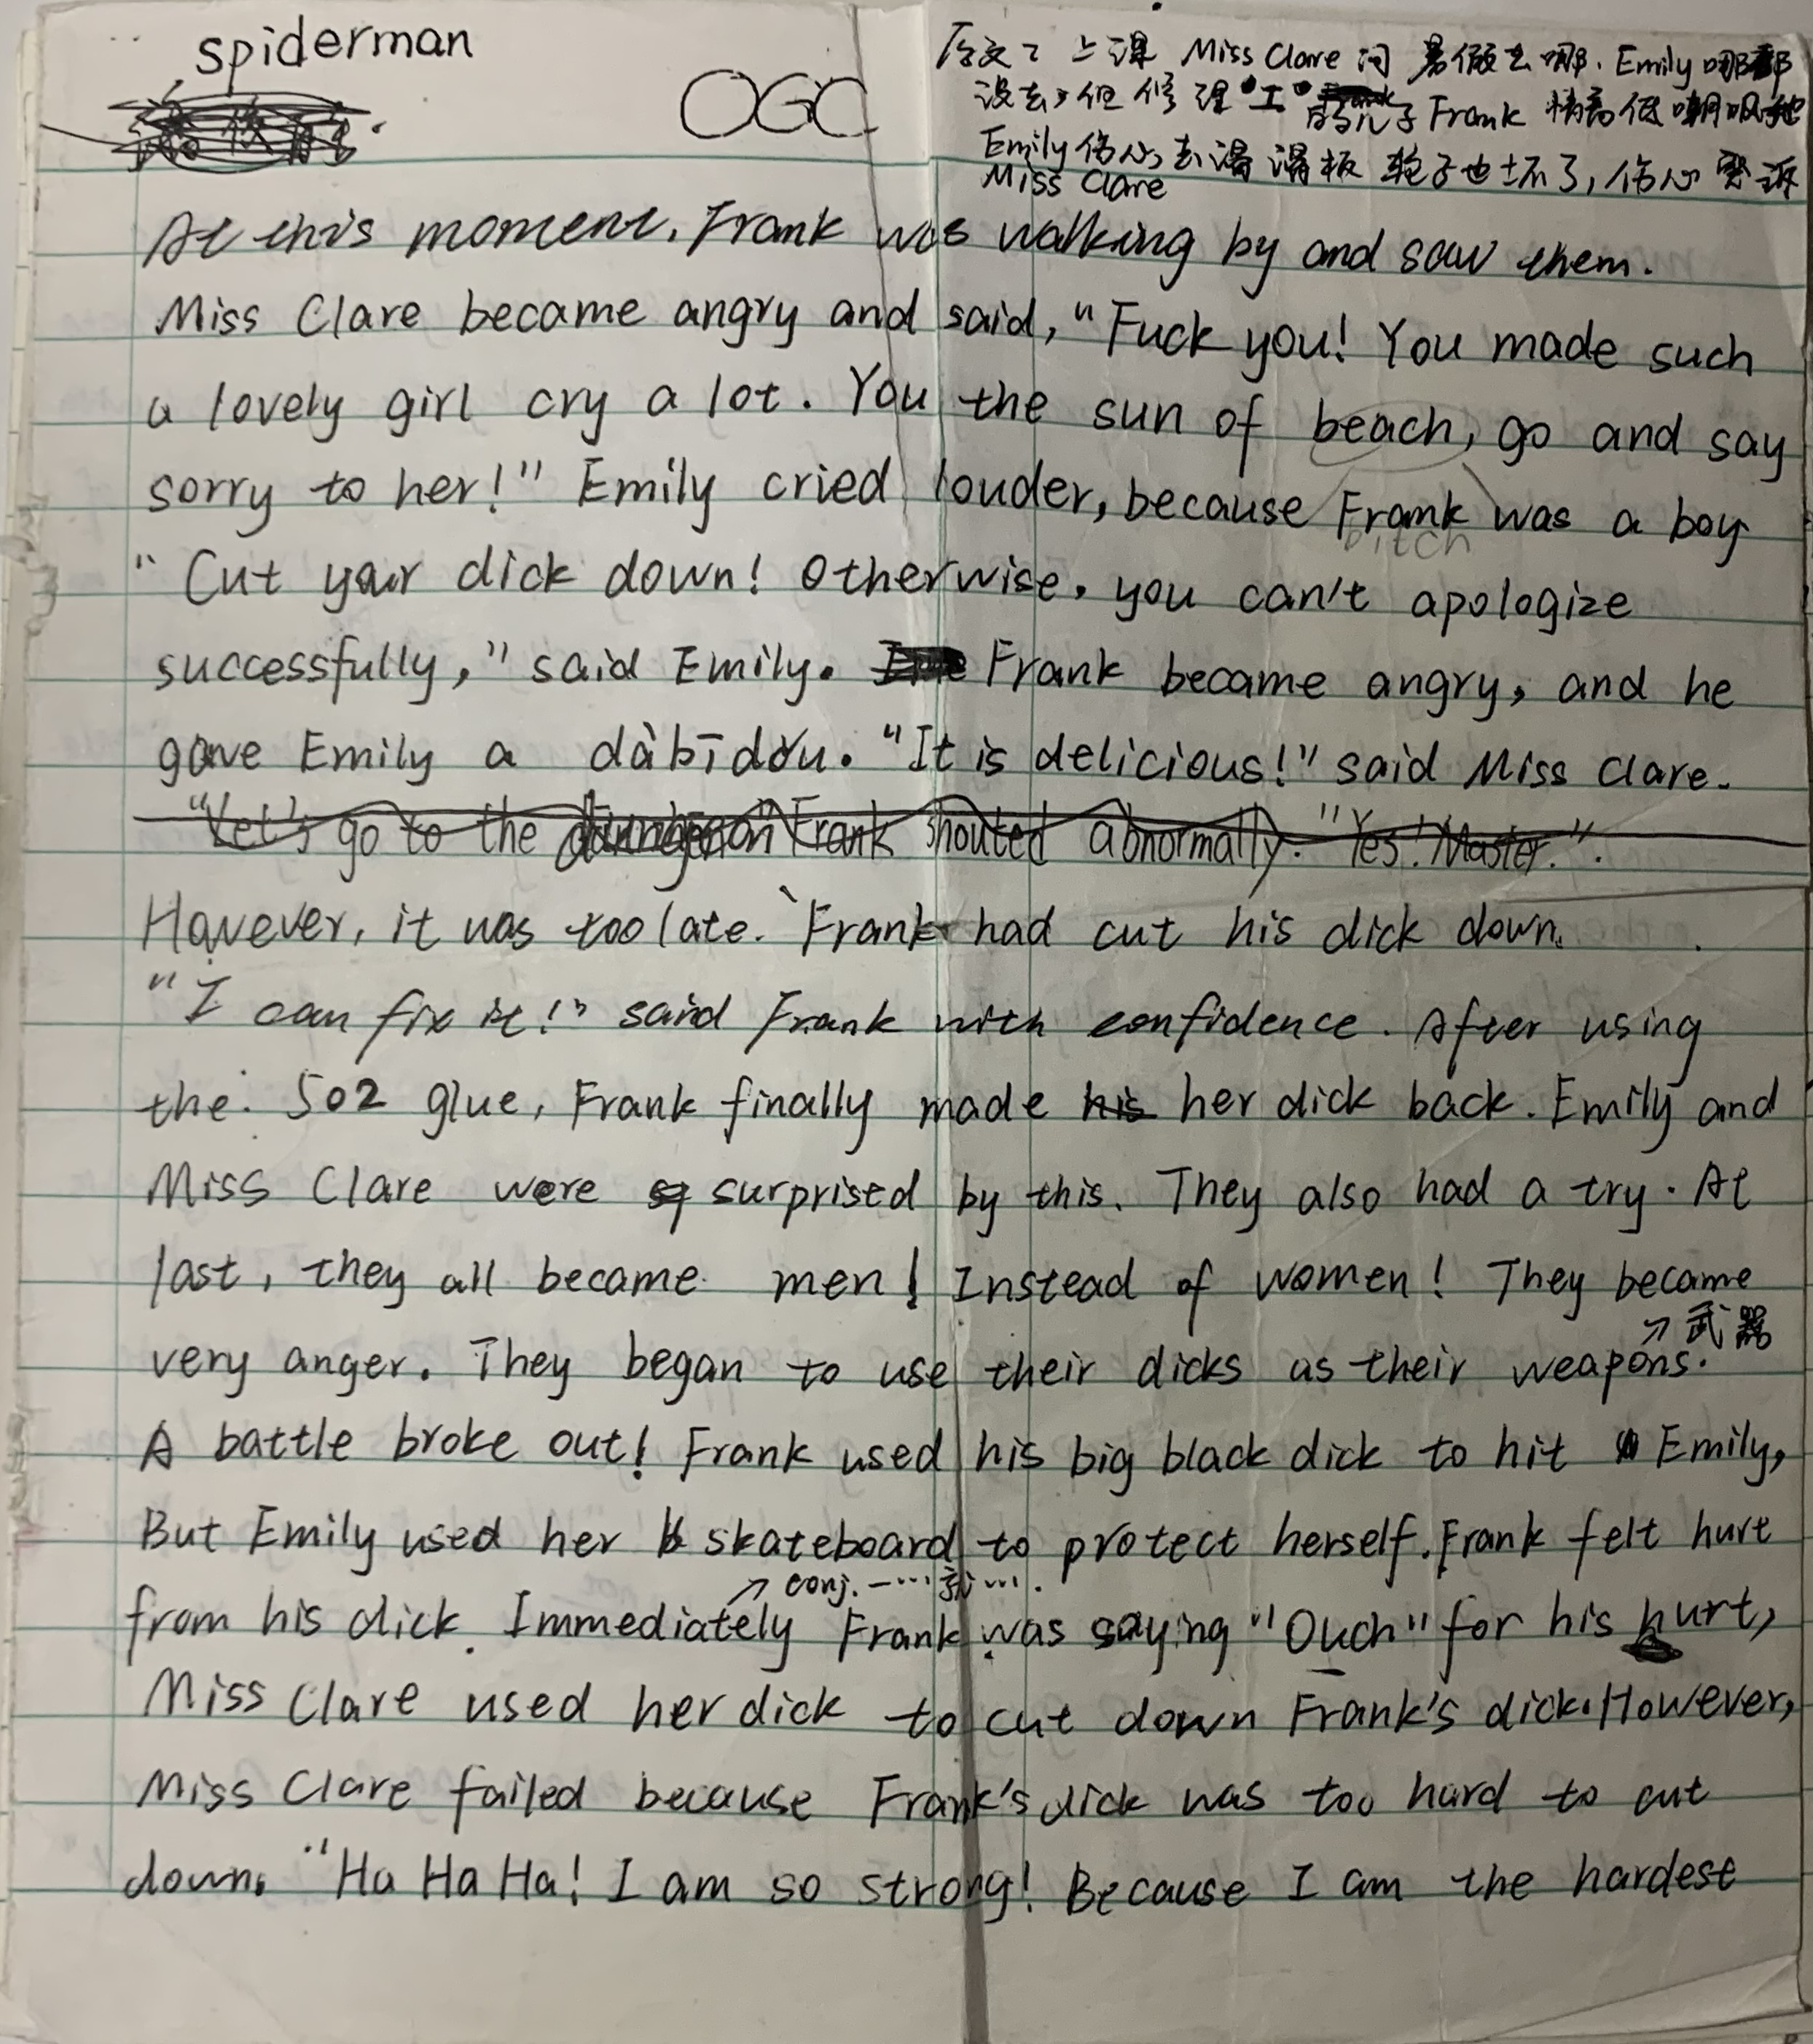 spiderman
OGC
原文: 上课 Miss Clare 问 暑假去哪. Emily 哪都
没去, 但修理"工"的儿子 Frank 情商低嘲讽她
Emily 伤心, 去滑滑板 轮子也坏了, 伤心 告诉
Miss Clare
At this moment, Frank was walking by and saw them.
Miss Clare became angry and said, "Fuck you! You made such
a lovely girl cry a lot. You the sun of beach, go and say
sorry to her!" Emily cried louder, because Frank was a boy
bitch
"Cut your dick down! Otherwise, you can't apologize
successfully," said Emily. Frank became angry, and he
gave Emily a dàbīdōu. "It is delicious!" said Miss Clare.
"Let's go to the dungeon" Frank shouted abnormally. "Yes! Master.".
However, it was too late. Frank had cut his dick down.
"I can fix it!" said Frank with confidence. After using
the 502 glue, Frank finally made his her dick back. Emily and
Miss Clare were surprised by this. They also had a try. At
last, they all became men! Instead of women! They became
↗武器
very anger. They began to use their dicks as their weapons.
A battle broke out! Frank used his big black dick to hit Emily,
But Emily used her skateboard to protect herself. Frank felt hurt
↗ conj. 一…就….
from his dick. Immediately Frank was saying "Ouch" for his hurt,
Miss Clare used her dick to cut down Frank's dick. However,
Miss Clare failed because Frank's dick was too hard to cut
down. "Ha Ha Ha! I am so strong! Because I am the hardest